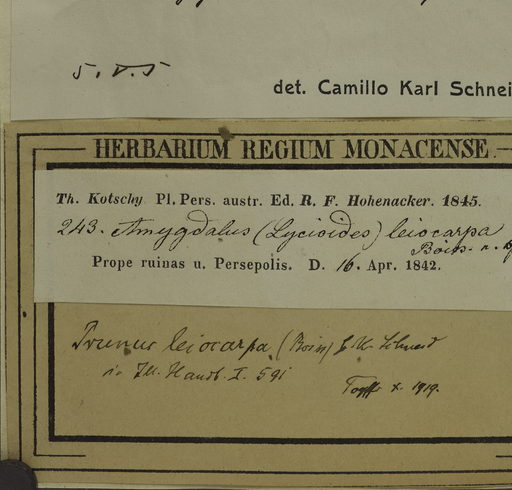 5. V. 5
det. Camillo Karl Schnei
HERBARIUM REGIUM MONACENSE.
Th. Kotschy Pl. Pers. austr. Ed. R. F. Hohenacker. 1845.
243. Amygdalus (Lycioides) leiocarpa
Boiss. n. sp
Prope ruinas u. Persepolis. D. 16. Apr. 1842.
Prunus leiocarpa (Boiss) C. K. Schneid
in Ill. Handb. I. 591
X. 1919.